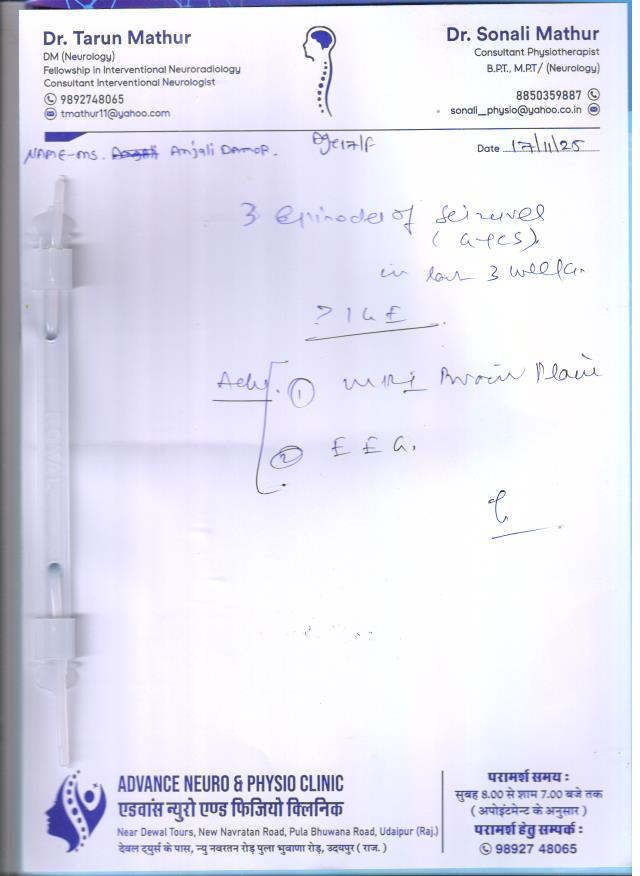 Dr. Tarun Mathur
DM (Neurology)
Fellowship in Interventional Neuroradiology
Consultant Interventional Neurologist
9892748065
tmathur11@yahoo.com
Dr. Sonali Mathur
Consultant Physiotherapist
B.P.T., M.P.T/ (Neurology)
8850359887
sonali_physio@yahoo.co.in
NAME-MS. Anjali Damor. Age 17/F
Date 17/11/25
3 Episodes of Seizures
(GTCS)
in last 3 weeks.
? IGE
Adv. ① MRI Brain Plain
② EEG.
ADVANCE NEURO & PHYSIO CLINIC
एडवांस न्युरो एण्ड फिजियो क्लिनिक
Near Dewal Tours, New Navratan Road, Pula Bhuwana Road, Udaipur (Raj.)
देवल ट्युर्स के पास, न्यु नवरतन रोड़ पुला भुवाणा रोड़, उदयपुर ( राज. )
परामर्श समय :
सुबह 8.00 से शाम 7.00 बजे तक
( अपोइंटमेन्ट के अनुसार )
परामर्श हेतु सम्पर्क :
98927 48065